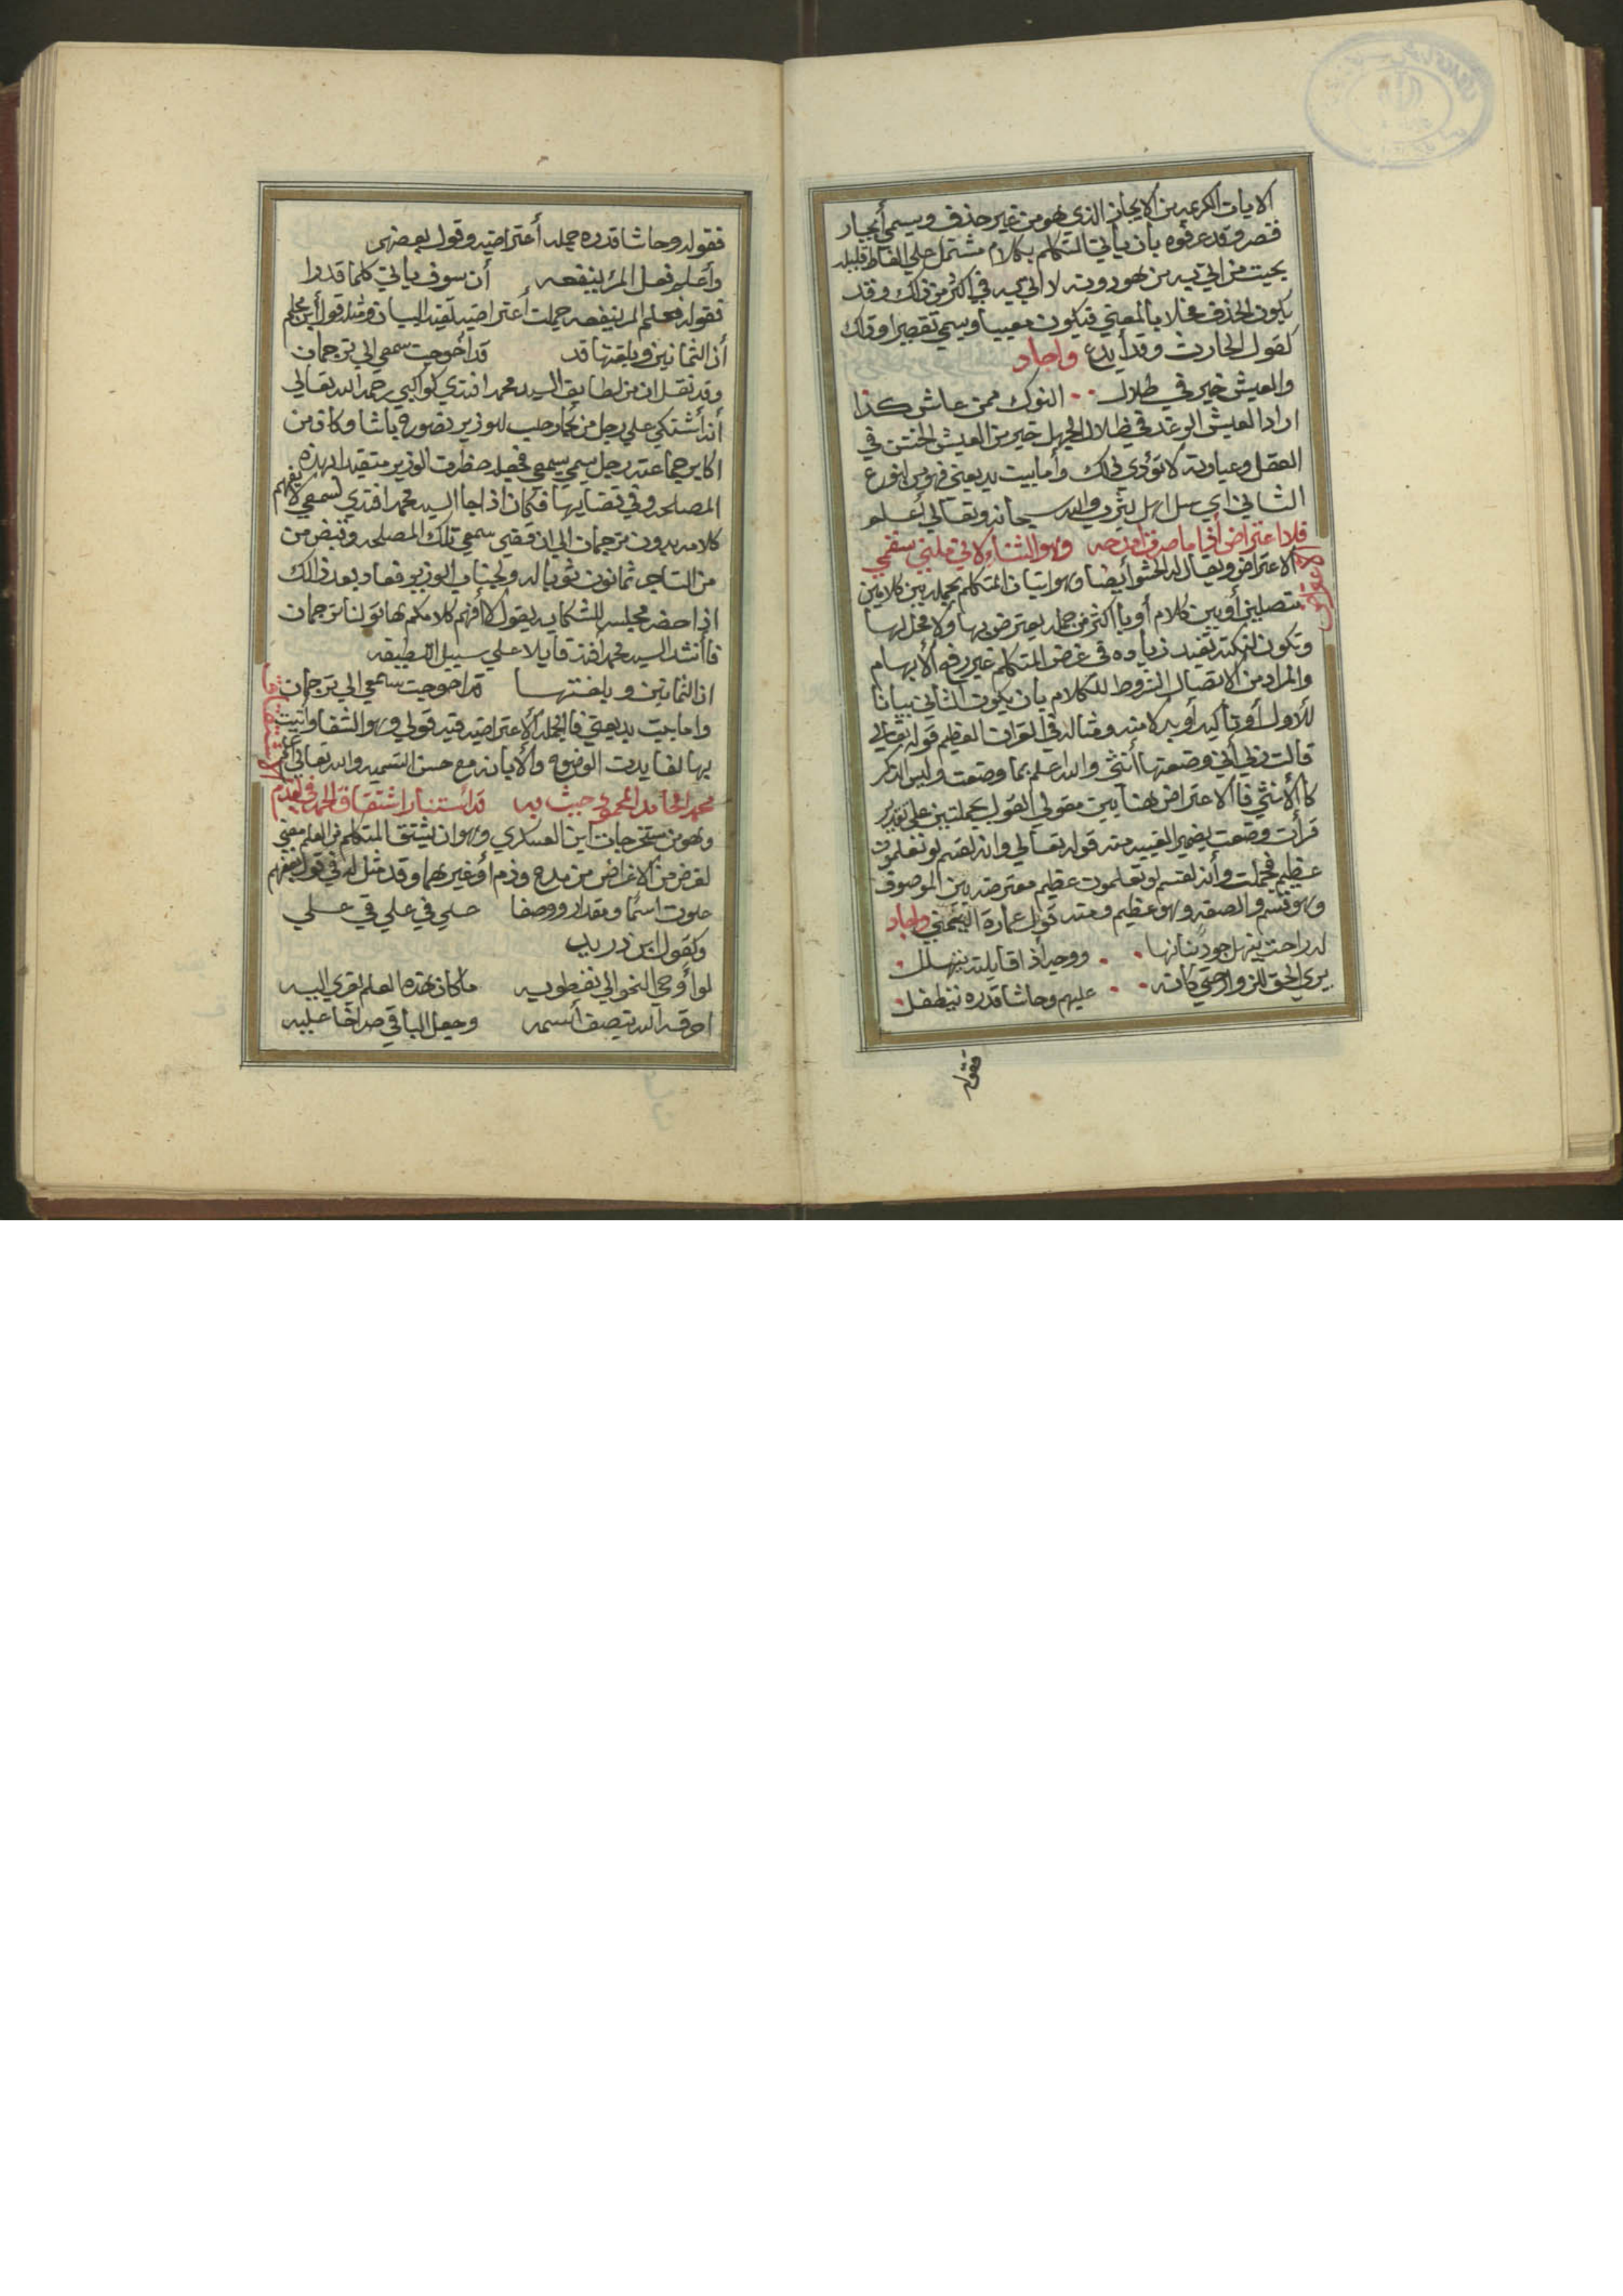 الايات الكريمه من الايجاز الذي هو من غير حذف ويسمي أيجاز
قصر وقد عرفوه بان يأتي المتكلم بكلام مشتمل علي الفاظ قليله
بحيث من اتي به من هو دونه لا اتي به في اكثر من ذلك وقد
يكون الحذف مخلا بالمعني فيكون معيبا ويسمي تقصيرا وذلك
كقول الحارث وقد أبدع واجاد
والعيش خير في ظلال النوك ممن عاش كدا
اراد العيش الرغد في ظلال الجهل خير من العيش الخشن في
العقل وعبارته لا تؤدي ذلك وأما بيت بديعيتي فهو من النوع
الثاني اي سل اهل بدر والله سبحانه وتعالي أعلم
فلا اعتراض أذا ما صرف امدحه وهو الشفا ولاني قلبني سقمي
الاعتراض
الاعتراض ويقال له الحشو أيضا وهو اتيان المتكلم بجمله بين كلامين
متصلين أو بين كلام أو بأكثر من جمله يعترض بها ولا محل لها
وتكون لنكته تفيد زياده في غرض المتكلم غير رفع الابهام
والمراد من الاتصال الشروط للكلام بان يكون الثاني بيانا
للأول أو تأكيد أو بدلا منه ومثاله في القران العظيم قوله تعالي
قالت رب أني وضعتها أنثي والله اعلم بما وضعت وليس الذكر
كالانثي فالاعتراض هنا بين مقولي القول بجملتين علي تقدير
قرأت وضعت بضمير الغيبه منه قوله تعالي وانه لقسم لو تعلمون
عظيم فجملت وأنه لقسم لو تعلمون عظيم معترضه بين الموصوف
وهو قسم والصفه وهو عظيم ومنه قول عمارة اليمني واجاد
له راحت ينهل جود بنانها ووجه أذا قابلته يتهلل
يري الحق للزوار حتي كانه عليهم وحاشا قدره يتطفل
فقوله
فقوله وحاشا قدره جمله أعتراضيه وقول بعضهم
وأعلم فعلم المرء ينفعه أن سوف يأتي كلما قدرا
فقوله فعلم المرء ينفعه جملت أعتراضيه لتفيد البيان ومثله قول أبن محلم
أن الثمانين وبلغتها قد قد أحوجت سمعي الي ترجمان
وقد نقل ان من لطايف السيد محمد افندي كواكبي رحمه الله تعالي
أنه أشتكي علي رجل من تجار حلب للوزير نصوره باشا وكان من
اكابر جماعته رجل يسمي سمعي فجعله حضرت الوزير متقيدا بهذه
المصلحه وفي نقضايها فكان اذا جا السيد محمد افندي لسمعي لا يفهم
كلامه بدون ترجمان الي ان قضي سمعي تلك المصلحه وقبض من
من التاجر ثمانون ثوبا له ولجناب الوزير فعاد بعد ذالك
اذا حضر مجلسه للشكايه يقول لا أفهم كلامكم هاتو لنا ترجمان
فأنشد السيد محمد افندي قايلا علي سبيل اللطيفه
ان الثمانين وبلغتها قد احوجت سمعي الي ترجمان
واما بيت بديعيتي فالجمله الاعتراضيه فيه قولي وهو الشفا وأتيت
بها لفايدت الوضوح والأبانه مع حسن التسميه والله تعالي أعلم
الاشتقاق
محمد الحامد المحمود حيث به قد أستنار اشتقاق الحمد في القدم
وهو من مستخرجات ابن العسكري وهو ان يشتق المتكلم من العلم معني
لغرض من الاغراض من مدح وذم أو غيرهما وقد مثل له في قول بعضهم
علوت اسما ومقدار ووصفا علي في علي في علي
وكقول ابن دريد
لو أوحي النحو الي نفطويه ما كان هذه العلم يقري اليه
احرقه الله بنصف أسمه وجعل الباقي صراخا عليه